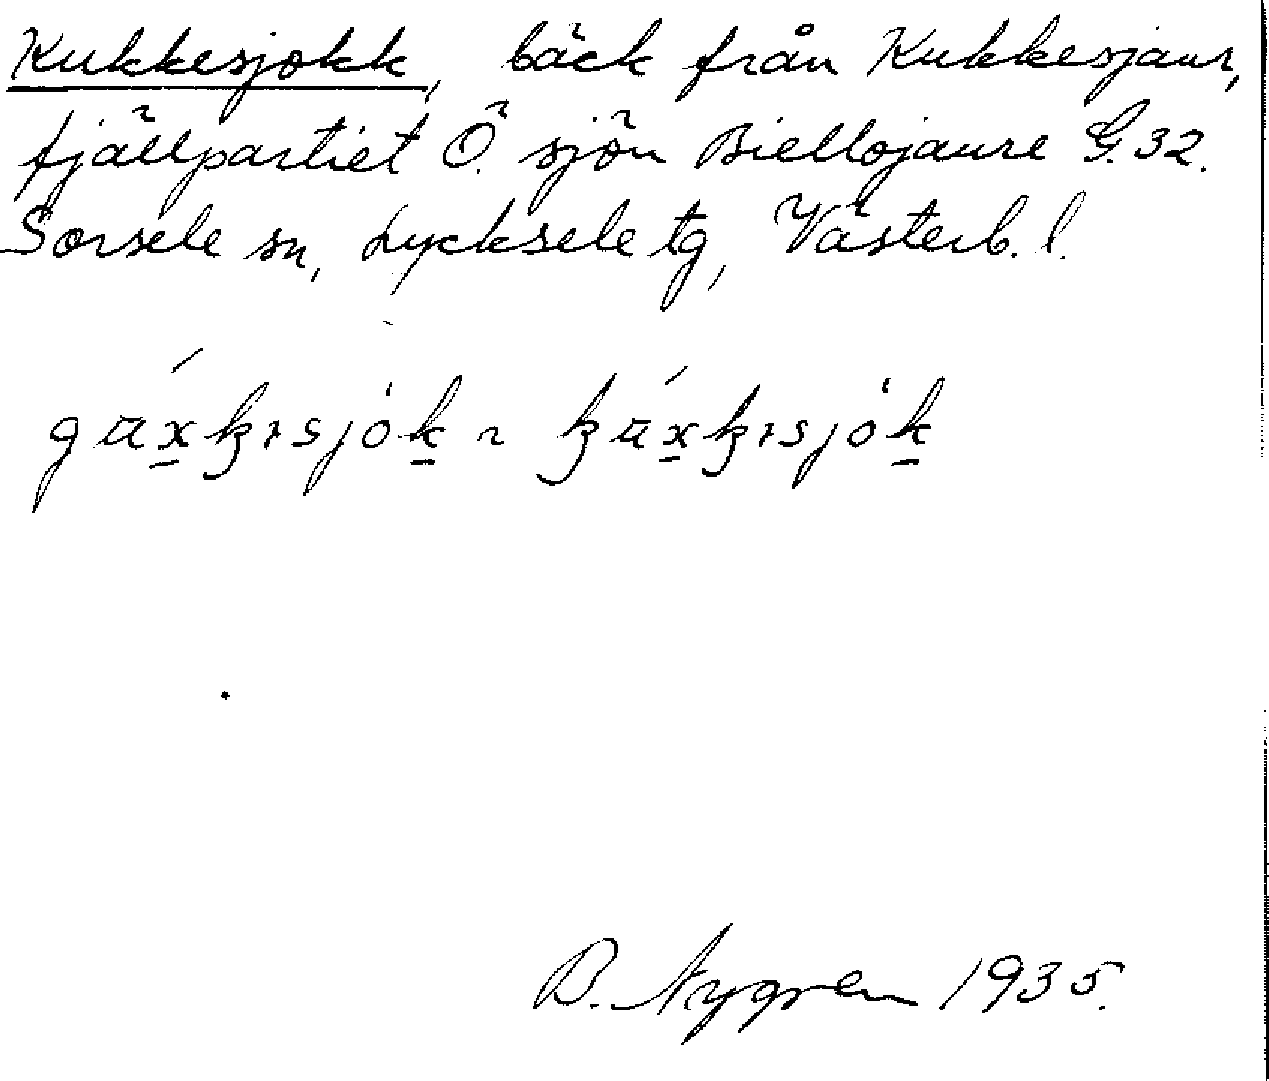 Kukkesjokk, bäck från Kukkesjaur,
fjällpartiet Ö. sjön Biellojaure G. 32.
Sorsele sn, Lycksele tg, Västerb. l.
B. Nygren 1935.